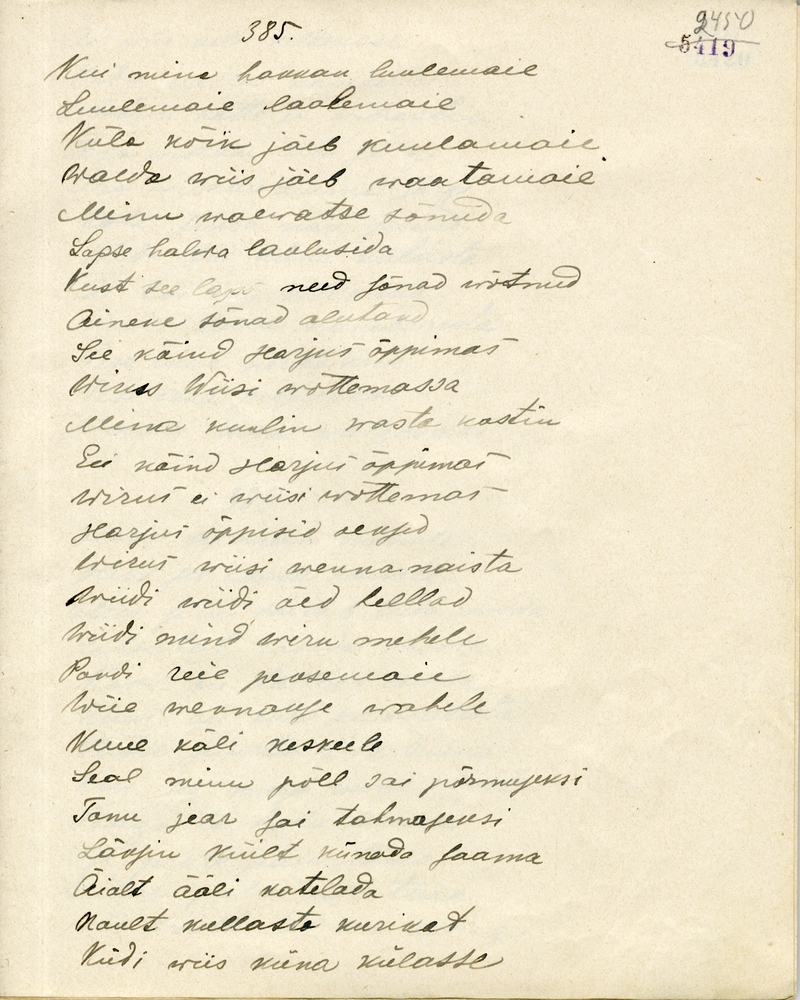 385.
2450
5419
Kui mina hakkan laulemaie
Laulemaie laalemaie
Küla kõik jäeb kuulamaie
Walda wiis jäeb waatamaie
Minu waewatse sõnuda
Lapse halwa laulusida
Kust see laps need sõnad wõtnud
Aineke sõnad alutand
See käind Harjus õppimas
Wirus Wiisi wõttemassa
Mina kuulin wasta kostin
Ei käind Harjus õppimas
Wirus ei wiisi wõttemas
Harjus õppisid
Wirus wiisi wenna naista
Wiidi wiidi äed hellad
Wiidi mind wiru mehele
Pandi reie peksemaie
Wiie wennakse wahele
Kuue käli keskeele
Seal minu põll sai põrmuseksi
Tanu jear sai tahmaseksi
Läksin Küilt künada saama
Äialt ääli katelada
Nault kullasta kurikat
Küdi wiis küna külasse